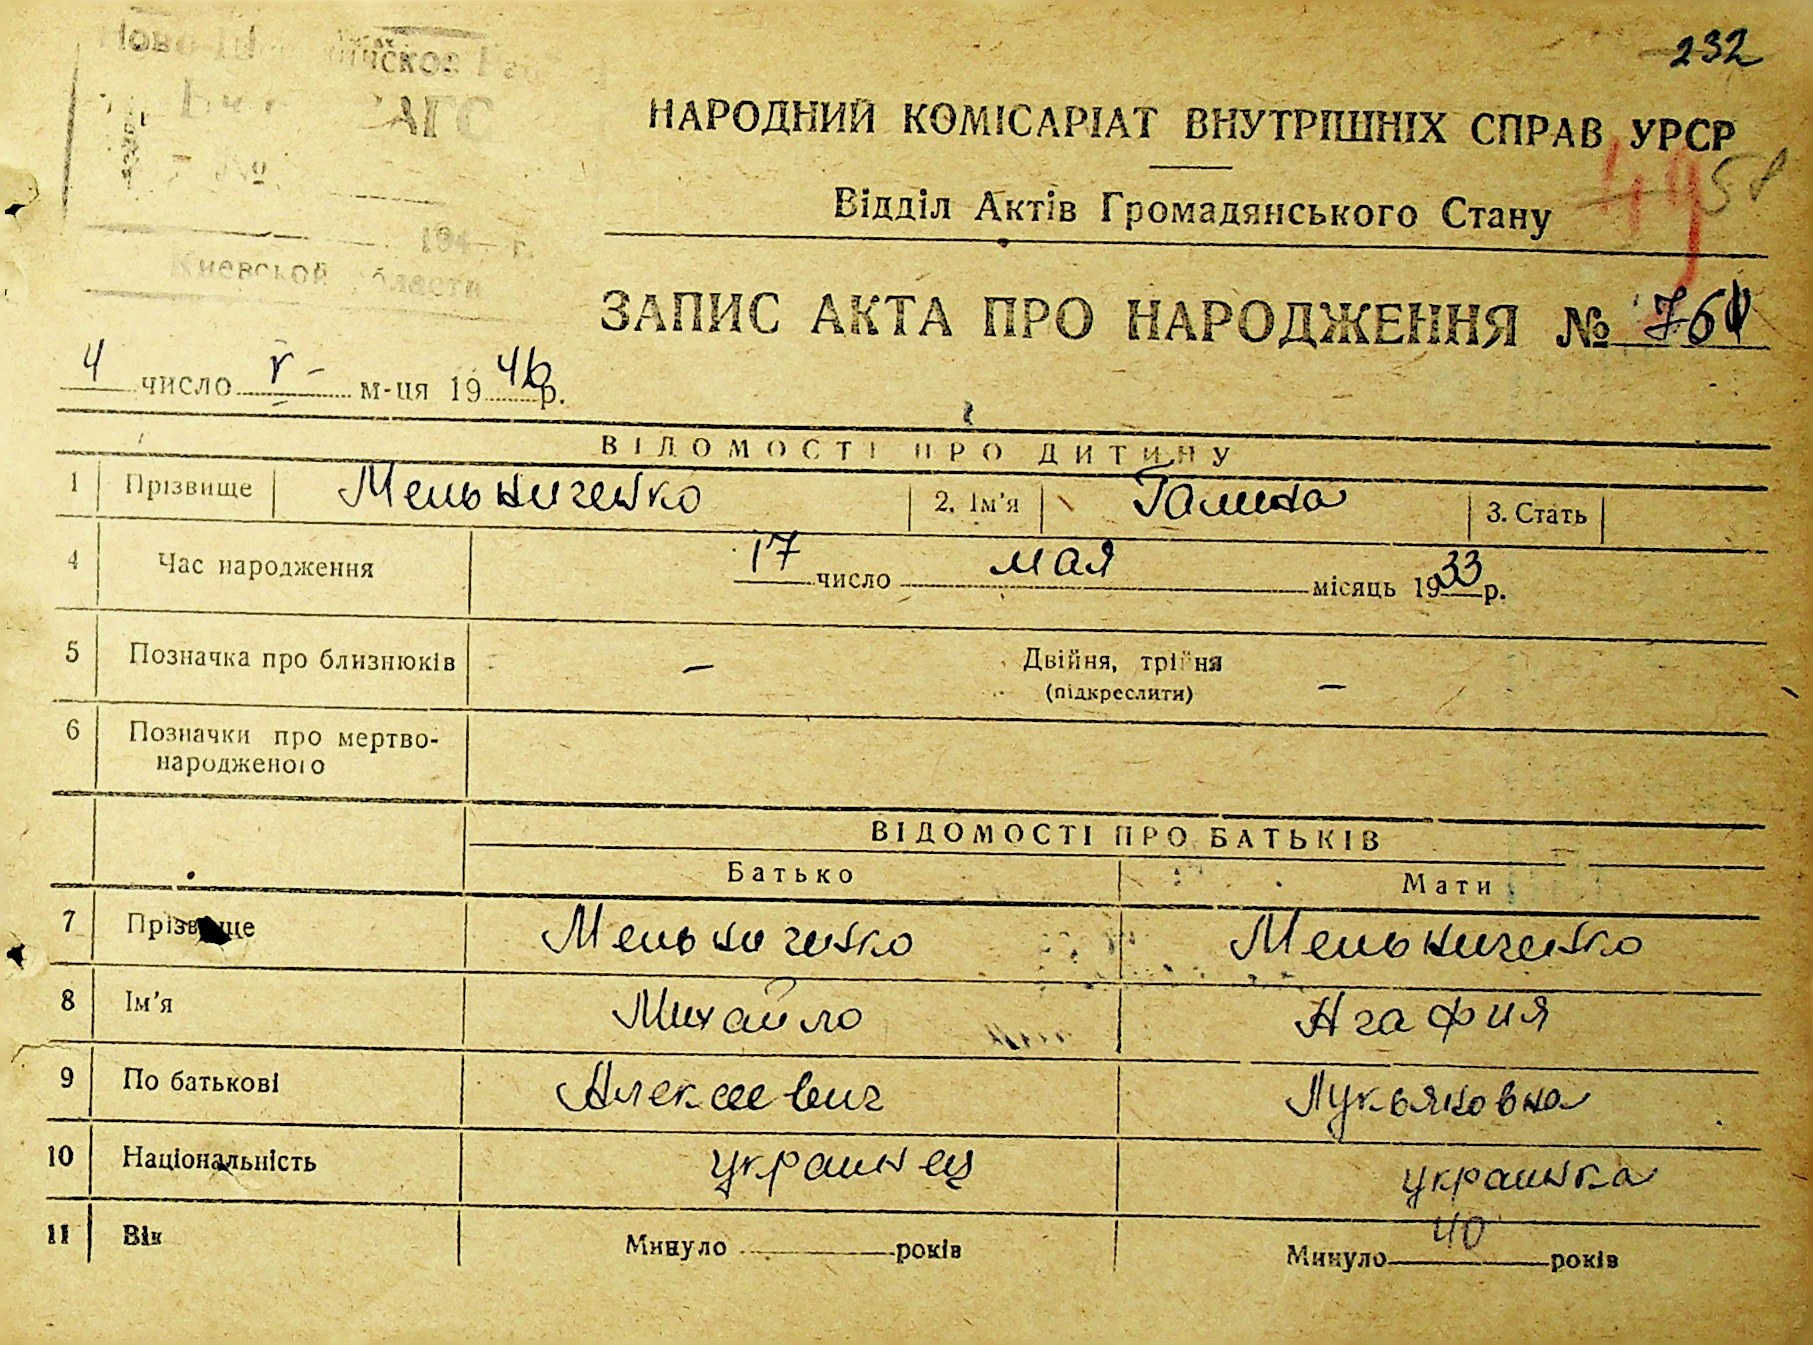 232
ЗАГС
№
194 г.
Киевской области
НАРОДНИЙ КОМІСАРІАТ ВНУТРІШНІХ СПРАВ УРСР
49 58
Відділ Актів Громадянського Стану
ЗАПИС АКТА ПРО НАРОДЖЕННЯ №
4 число V - м-ця 19 р.
ВІДОМОСТІ ПРО ДИТИНУ
1 Прізвище Мельниченко 2. Ім'я Галина 3. Стать
4 Час народження 17 число мая місяць 1933 р.
5 Позначка про близнюків - Двійня, трійня -
(підкреслити)
6 Позначки про мертво-
народженого
ВІДОМОСТІ ПРО БАТЬКІВ
Батько Мати
7 Прізвище Мельниченко Мельниченко
8 Ім'я Михайло Агафия
9 По батькові Алексеевич Лукьяновна
10 Національність украинец украинка
11 Вік Минуло років Минуло 40 років